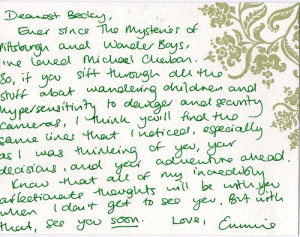 Dearest Becky,
Ever since The Mysteries of
Pittsburgh and Wonder Boys,
I've loved Michael Chabon.
So, if you sift through all the
stuff about wandering children and
hypersensitivity to danger and security
cameras, I think you'll find the
same lines that I noticed, especially
as I was thinking of you, your
decisions, and your adventure ahead.
Know that all of my incredibly
affectionate thoughts will be with you
when I don't get to see you. But with
that, see you soon. Love,